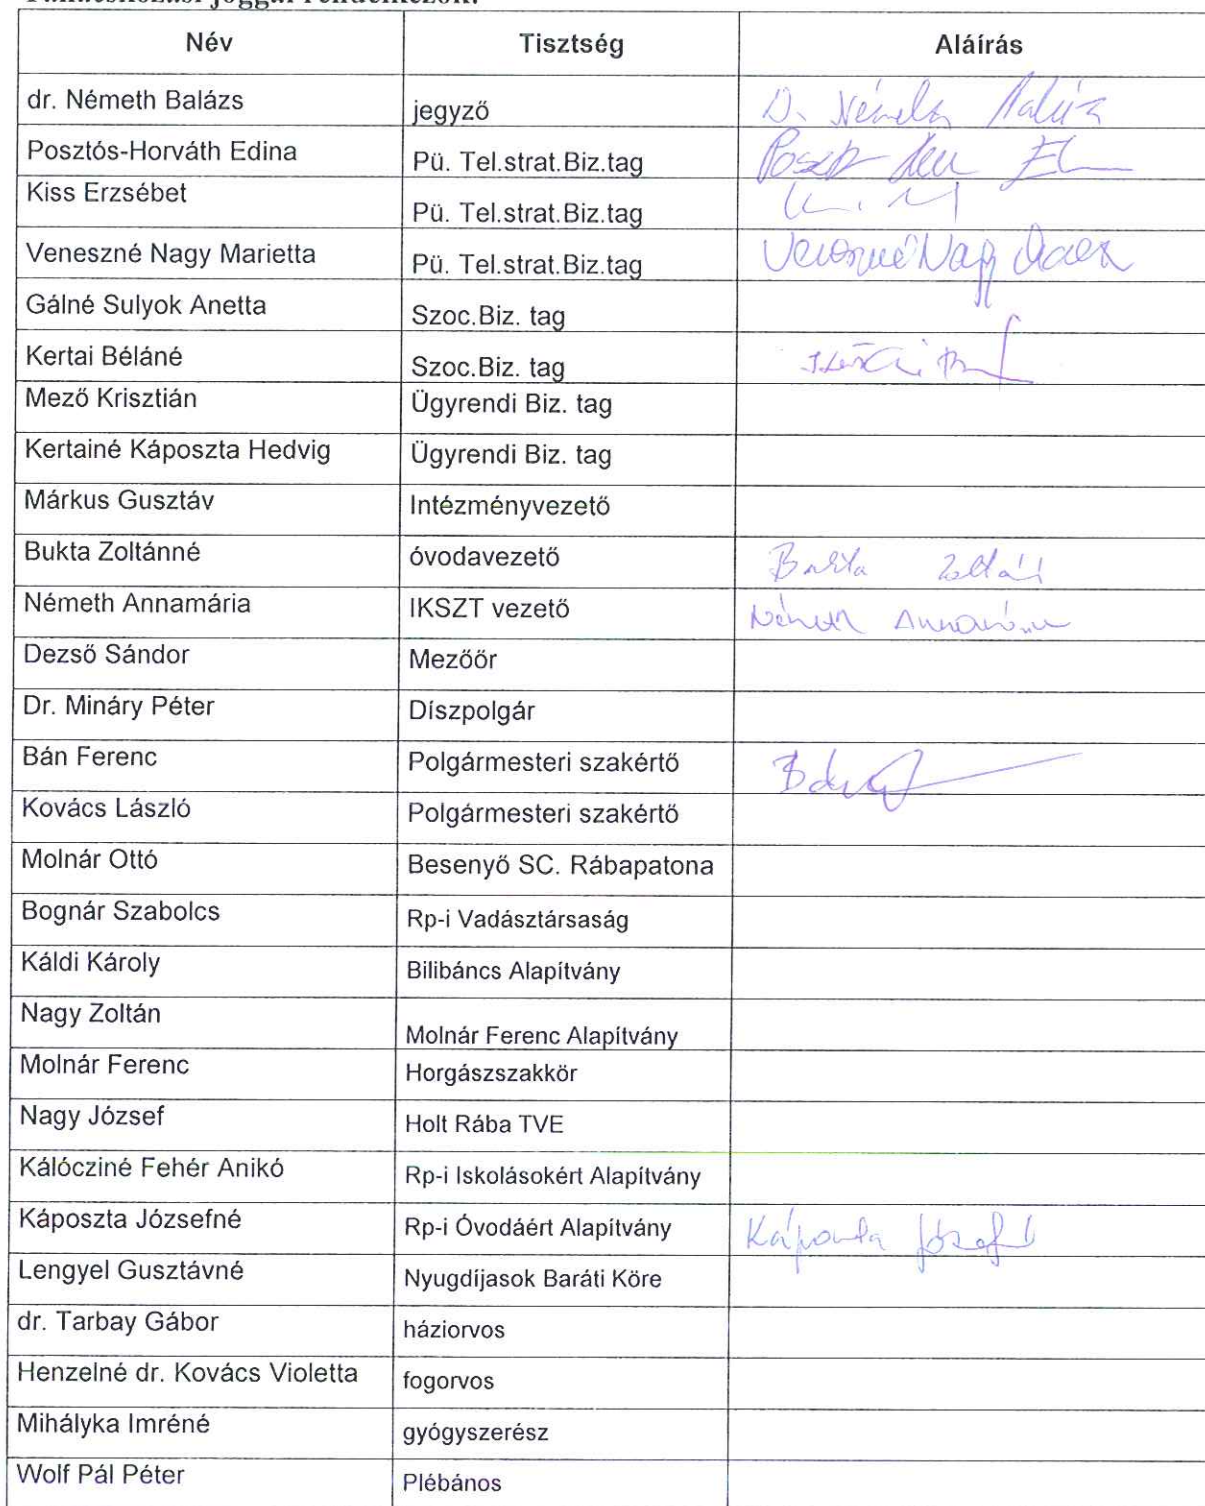 Tanácskozási joggal rendelkezők:
Név Tisztség Aláírás
dr. Németh Balázs jegyző D. Németh Balázs
Posztós-Horváth Edina Pü. Tel.strat.Biz.tag
Kiss Erzsébet Pü. Tel.strat.Biz.tag
Veneszné Nagy Marietta Pü. Tel.strat.Biz.tag Veneszné Nagy
Gálné Sulyok Anetta Szoc.Biz. tag
Kertai Béláné Szoc.Biz. tag
Mező Krisztián Ügyrendi Biz. tag
Kertainé Káposzta Hedvig Ügyrendi Biz. tag
Márkus Gusztáv Intézményvezető
Bukta Zoltánné óvodavezető Bukta Zoltánné
Németh Annamária IKSZT vezető Németh Annamária
Dezső Sándor Mezőőr
Dr. Mináry Péter Díszpolgár
Bán Ferenc Polgármesteri szakértő
Kovács László Polgármesteri szakértő
Molnár Ottó Besenyő SC. Rábapatona
Bognár Szabolcs Rp-i Vadásztársaság
Káldi Károly Bilibáncs Alapítvány
Nagy Zoltán Molnár Ferenc Alapítvány
Molnár Ferenc Horgászszakkör
Nagy József Holt Rába TVE
Kálócziné Fehér Anikó Rp-i Iskolásokért Alapítvány
Káposzta Józsefné Rp-i Óvodáért Alapítvány Káposzta Józsefné
Lengyel Gusztávné Nyugdíjasok Baráti Köre
dr. Tarbay Gábor háziorvos
Henzelné dr. Kovács Violetta fogorvos
Mihályka Imréné gyógyszerész
Wolf Pál Péter Plébános